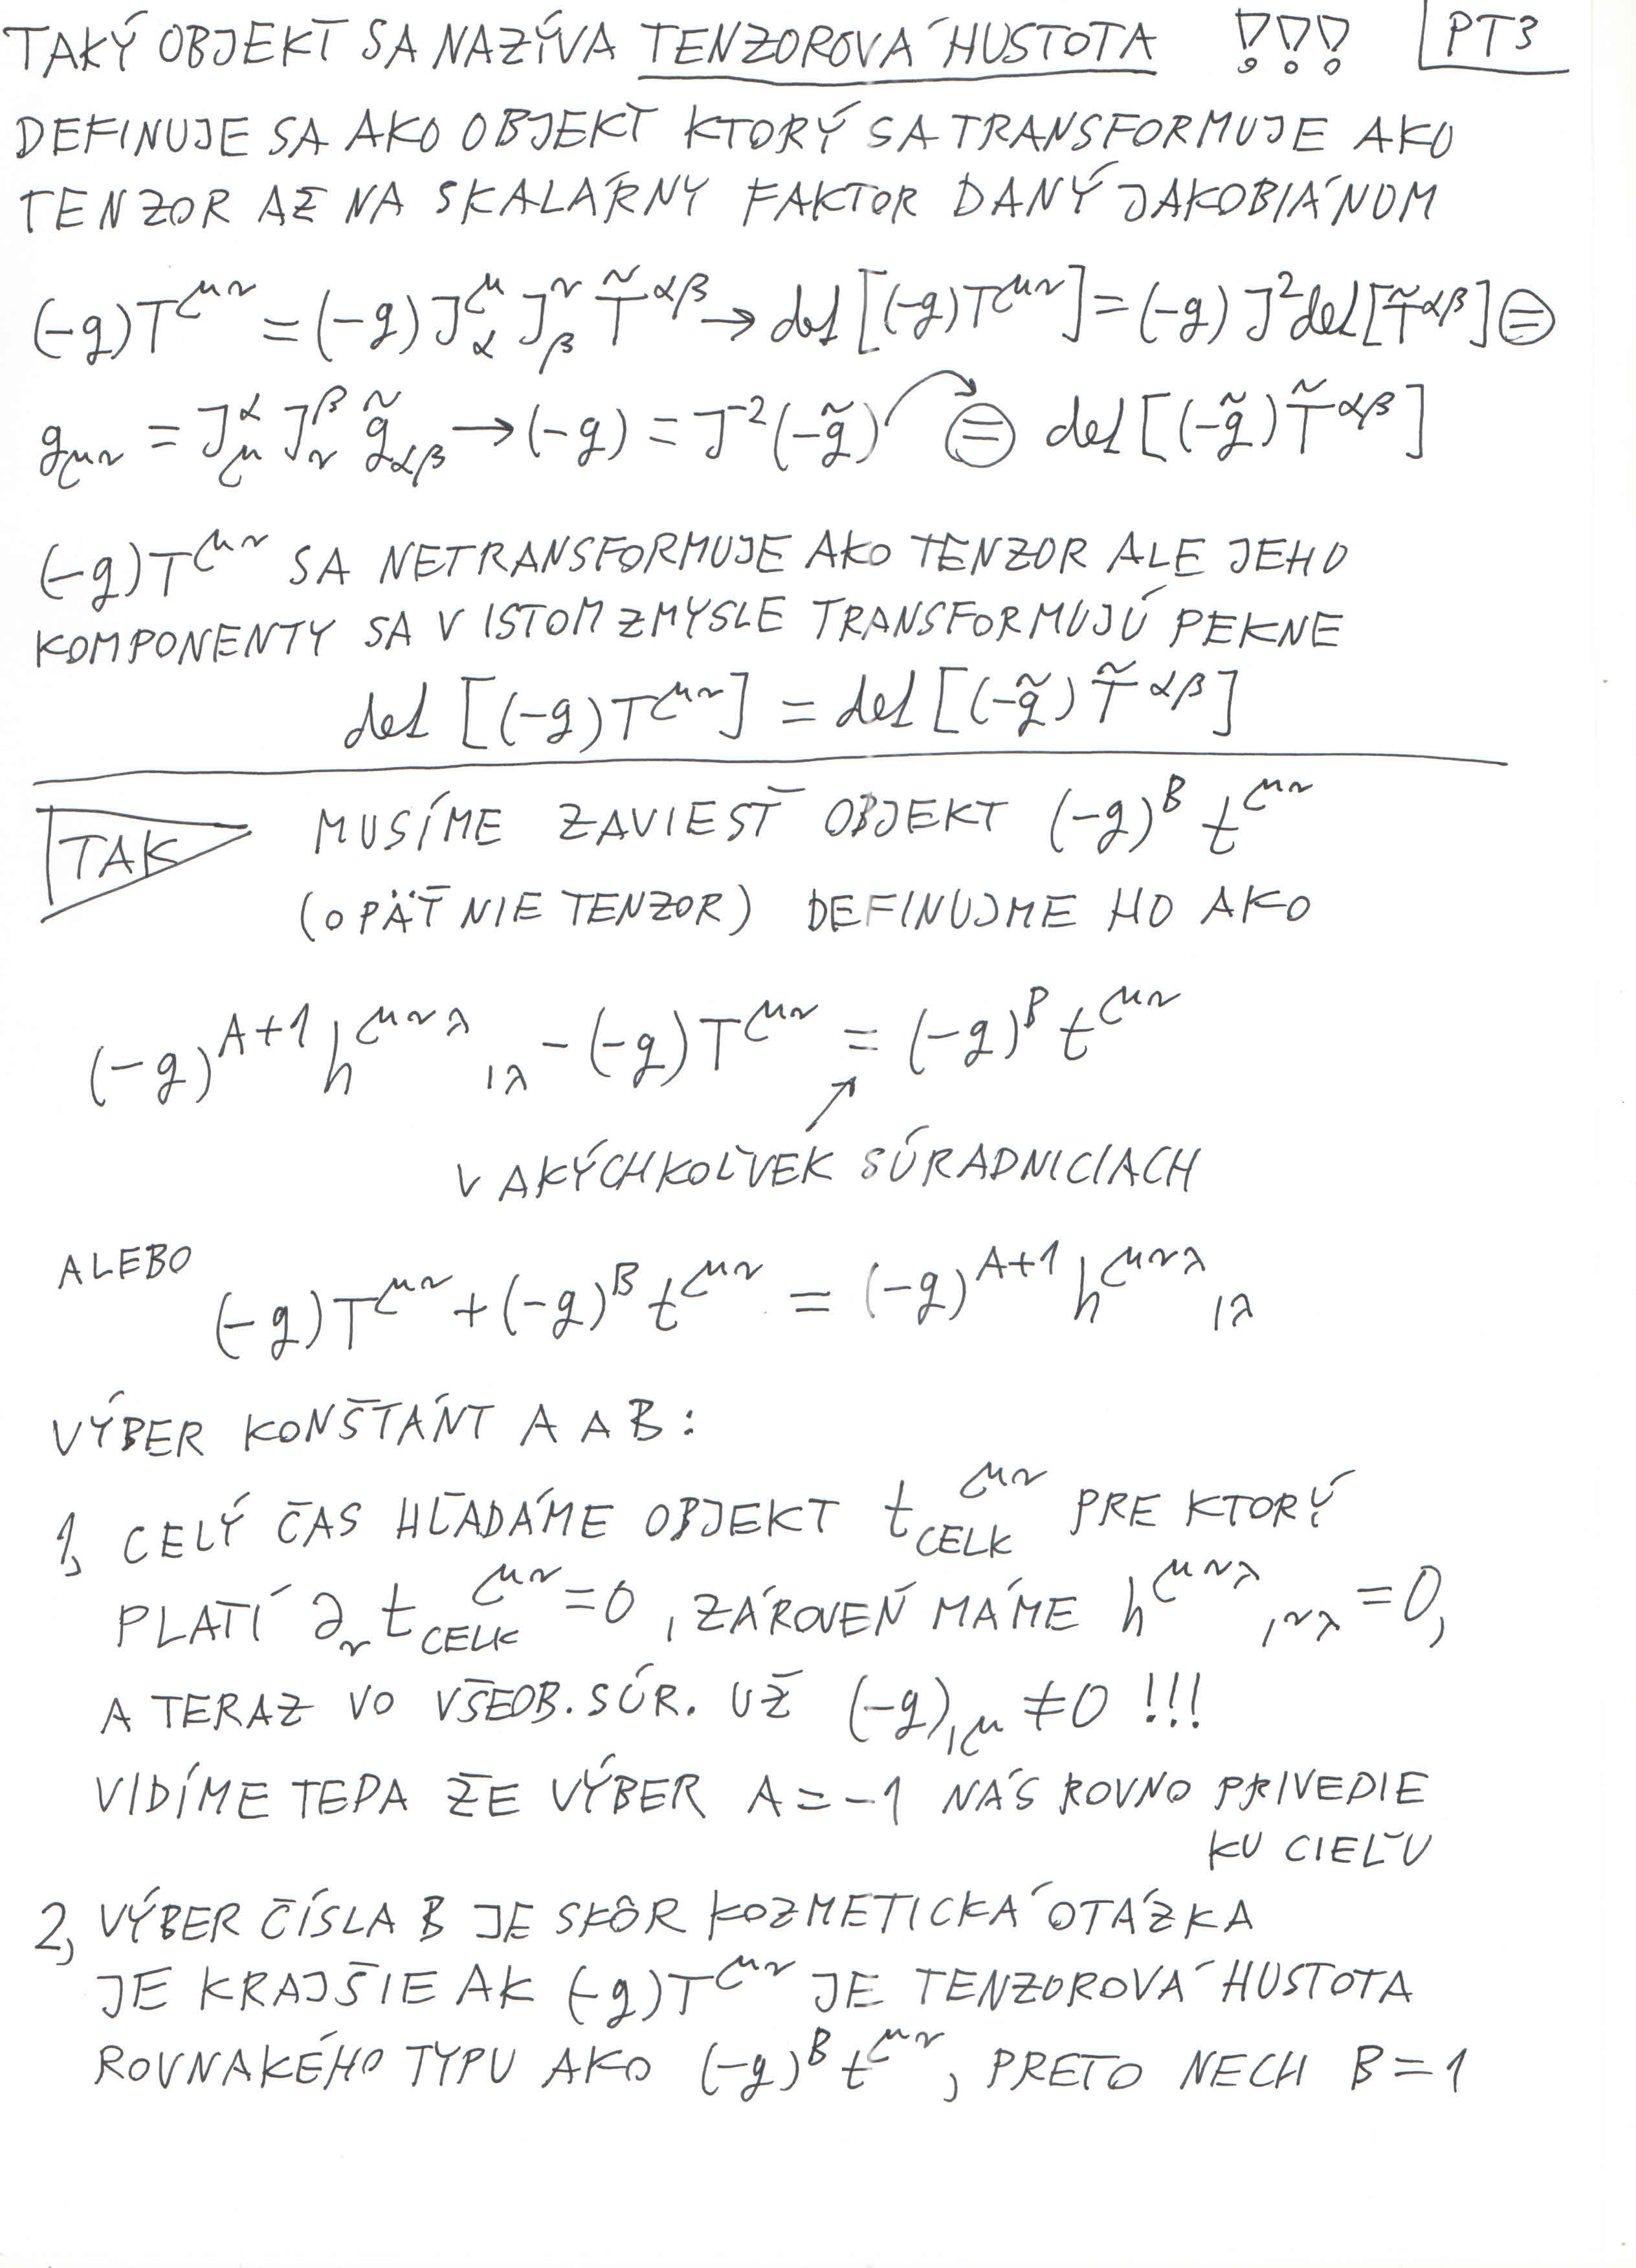 TAKÝ OBJEKT SA NAZÝVA TENZOROVÁ HUSTOTA !!! PT3
DEFINUJE SA AKO OBJEKT KTORÝ SA TRANSFORMUJE AKO
TENZOR AŽ NA SKALÁRNY FAKTOR DANÝ JAKOBIÁNOM
(-g)T^{μν} = (-g) J^μ_α J^ν_β T̃^{αβ} → det[(-g)T^{μν}] = (-g) J² det[T̃^{αβ}] ⊜
g_{μν} = J^α_μ J^β_ν g̃_{αβ} → (-g) = J^{-2}(-g̃) ⊜ det[(-g̃) T̃^{αβ}]
(-g)T^{μν} SA NETRANSFORMUJE AKO TENZOR ALE JEHO
KOMPONENTY SA V ISTOM ZMYSLE TRANSFORMUJÚ PEKNE
det [(-g)T^{μν}] = det [(-g̃) T̃^{αβ}]
TAK MUSÍME ZAVIESŤ OBJEKT (-g)^B t^{μν}
(OPÄŤ NIE TENZOR) DEFINUJME HO AKO
(-g)^{A+1} h^{μνλ}_{,λ} - (-g)T^{μν} = (-g)^B t^{μν}
V AKÝCHKOĽVEK SÚRADNICIACH
ALEBO (-g)T^{μν} + (-g)^B t^{μν} = (-g)^{A+1} h^{μνλ}_{,λ}
VÝBER KONŠTÁNT A A B:
1, CELÝ ČAS HĽADÁME OBJEKT t_{CELK}^{μν} PRE KTORÝ
PLATÍ ∂_ν t_{CELK}^{μν} = 0, ZÁROVEŇ MÁME h^{μνλ}_{,νλ} = 0,
A TERAZ VO VŠEOB. SÚR. UŽ (-g)_{,μ} ≠ 0 !!!
VIDÍME TEDA ŽE VÝBER A = -1 NÁS ROVNO PRIVEDIE
KU CIEĽU
2, VÝBER ČÍSLA B JE SKÔR KOZMETICKÁ OTÁZKA
JE KRAJŠIE AK (-g)T^{μν} JE TENZOROVÁ HUSTOTA
ROVNAKÉHO TYPU AKO (-g)^B t^{μν}, PRETO NECH B = 1